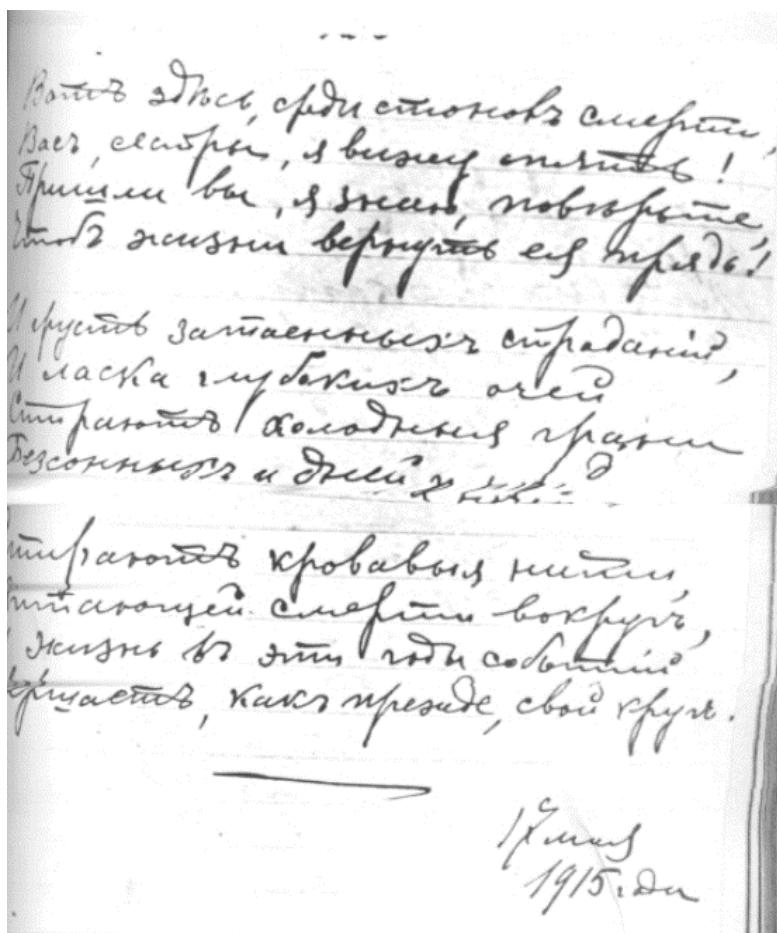 Вотъ здѣсь, среди стоновъ смерти,
Васъ, сестры, я вижу опять!
Пришли вы, я знаю, повѣрьте,
Чтобъ жизни вернуть ея прядь!
И грусть затаенныхъ страданій,
И ласка глубокихъ очей
Стираютъ холодныя грани
Безсонныхъ и дней
Стираютъ кровавыя нити,
Витающей смерти вокругъ,
И жизнь въ эти годы событій
Вершаетъ, какъ прежде, свой кругъ.
17 мая
1915 года